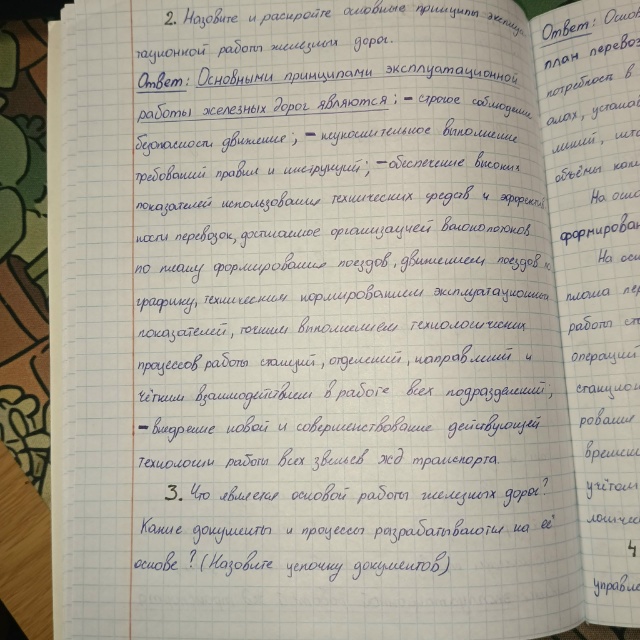 2. Назовите и раскройте основные принципы эксплуа-
тационной работы железных дорог.
Ответ: Основными принципами эксплуатационной
работы железных дорог являются: – строгое соблюдение
безопасности движение; – неукоснительное выполнение
требований правил и инструкций; – обеспечение высоких
показателей использования технических средств и эффектив
ности перевозок, достигаемое организацией вагонопотоков
по плану формирования поездов, движением поездов по
графику, техническим нормированием эксплуатационных
показателей, точным выполнением технологических
процессов работы станций, отделений, направлений и
чётким взаимодействием в работе всех подразделений;
– внедрение новой и совершенствование действующей
технологии работы всех звеньев жд транспорта.
3. Что является основой работы железных дорог?
Какие документы и процессы разрабатываются на её
основе? (Назовите цепочку документов)
Ответ: Основ
план перевоз
потребност в
алах, устана
ший, што
объёмы
На осно
формирован
На осн
плана пер
работы ста
операций
станцион
рование
времени
учётом
логичес
4
управле